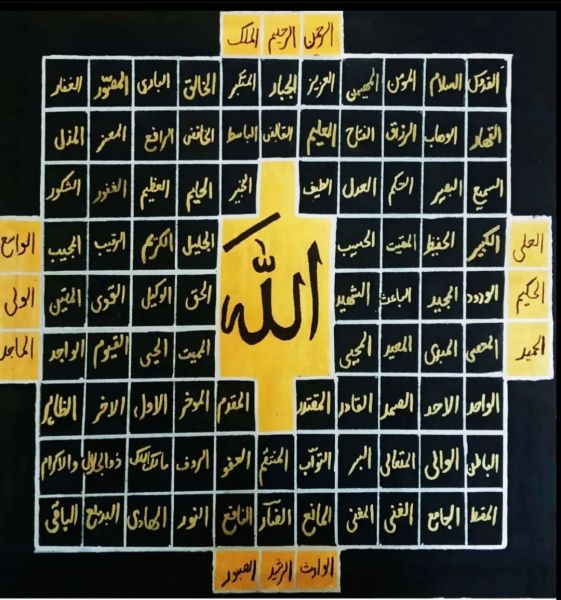 الرحمن الرحیم الملک
القدوس السلام المومن المهیمن العزیز الجبار المتکبر الخالق الباری المصوّر الغفار
القهار الوهاب الرزاق الفتاح العلیم القابض الباسط الخافض الرافع المعز المذل
السمیع البصیر الحکم العدل الطیف الخبیر الحلیم العظیم الغفور الشکور
العلی الکبیر الحفیظ المقیت الحسیب الجلیل الکریم الرقیب المجیب الواسع
الحکیم الودود المجید الباعث الشهید اللّٰه الحق الوکیل القوی المتین الولی
الحمید المحصی المبدی المعید المحیی الممیت الحی القیوم الواجد الماجد
الواحد الاحد الصمد القادر المقتدر المقدم الموخر الاول الاخر الظاهر
الباطن الوالی المتعالی البر التوّاب المنتقم العفو الروف مالک الملک ذوالجلال والاکرام
المقسط الجامع الغنی المغنی المانع الضآر النافع النور الهادی البدیع الباقی
الوارث الرشید الصبور